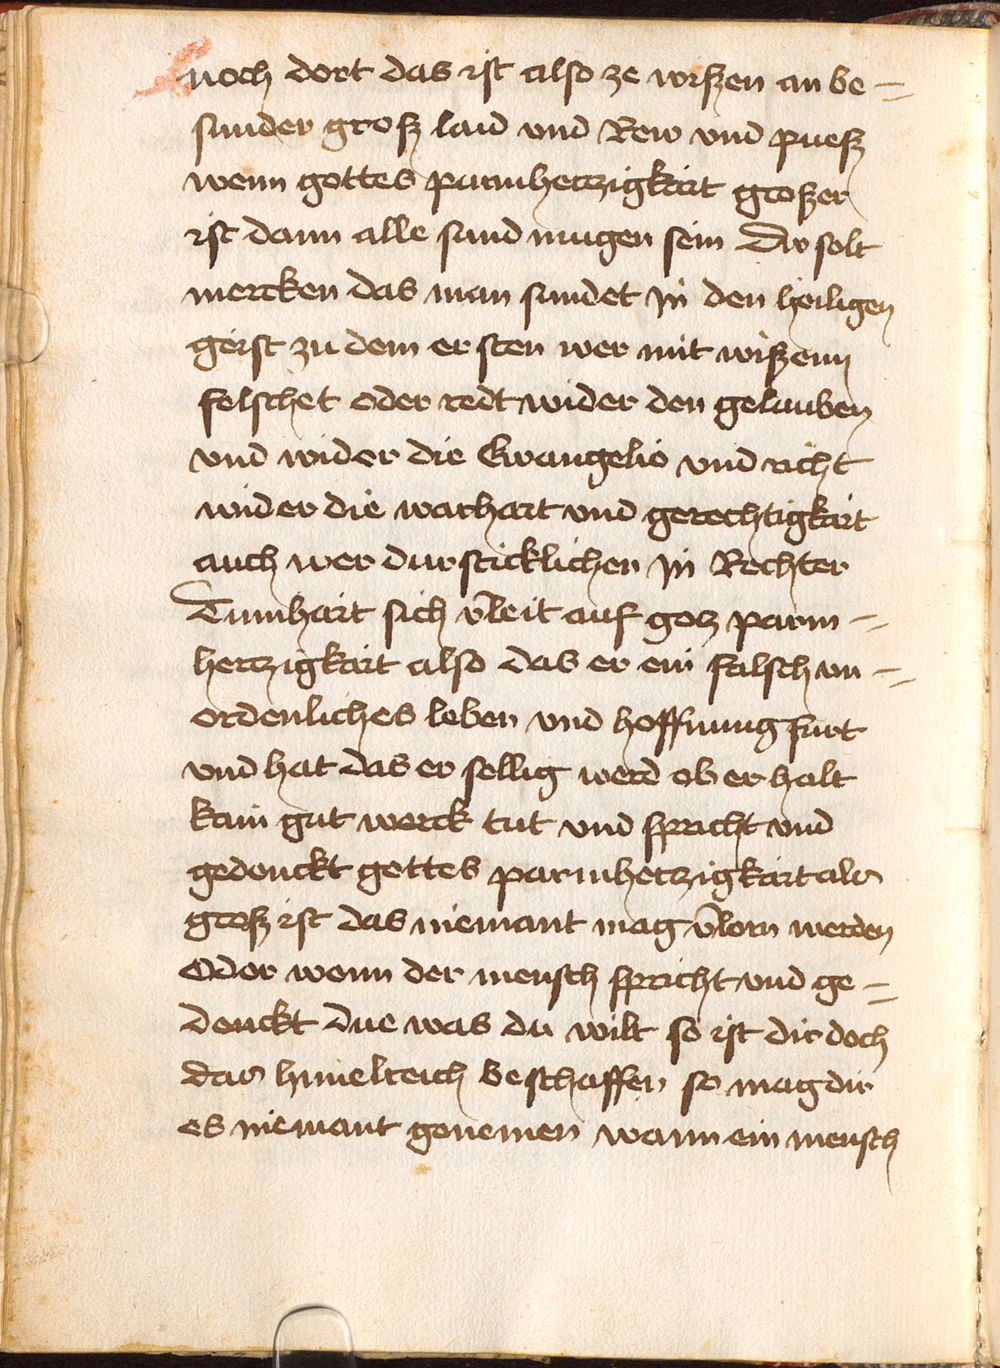 noch dort das ist also ze wißen an be=
sunder groß laid vnd Rew vnd pueß
wenn gottes parmhertzigkait großer
ist dann alle sund mugen sein Dw solt
mercken das man sundet Jn den heiligen
geist zu dem ersten wer mit wißenn
felschet oder redt wider den gelauben
vnd wider die Ewangelio vnd richt
wider die warhait vnd gerechtigkait
auch wer dursticklichen Jn Rechter
Tumhait sich v̄leit auf gotz parm=
hertzigkait also das er ein falsch vn=
ordenliches leben vnd hoffnung furt
vnd hat das er sellig werd ob er halt
kain gut werck tut vnd spricht vnd
gedenckt gottes parmhertzigkait als
groß ist das niemant mag v̄lorn werden
Oder wenn der mensch spricht vnd ge=
denckt due was du wilt so ist dir doch
das himelreich beschaffen so mag dir
es niemant genemen wann ein mensch